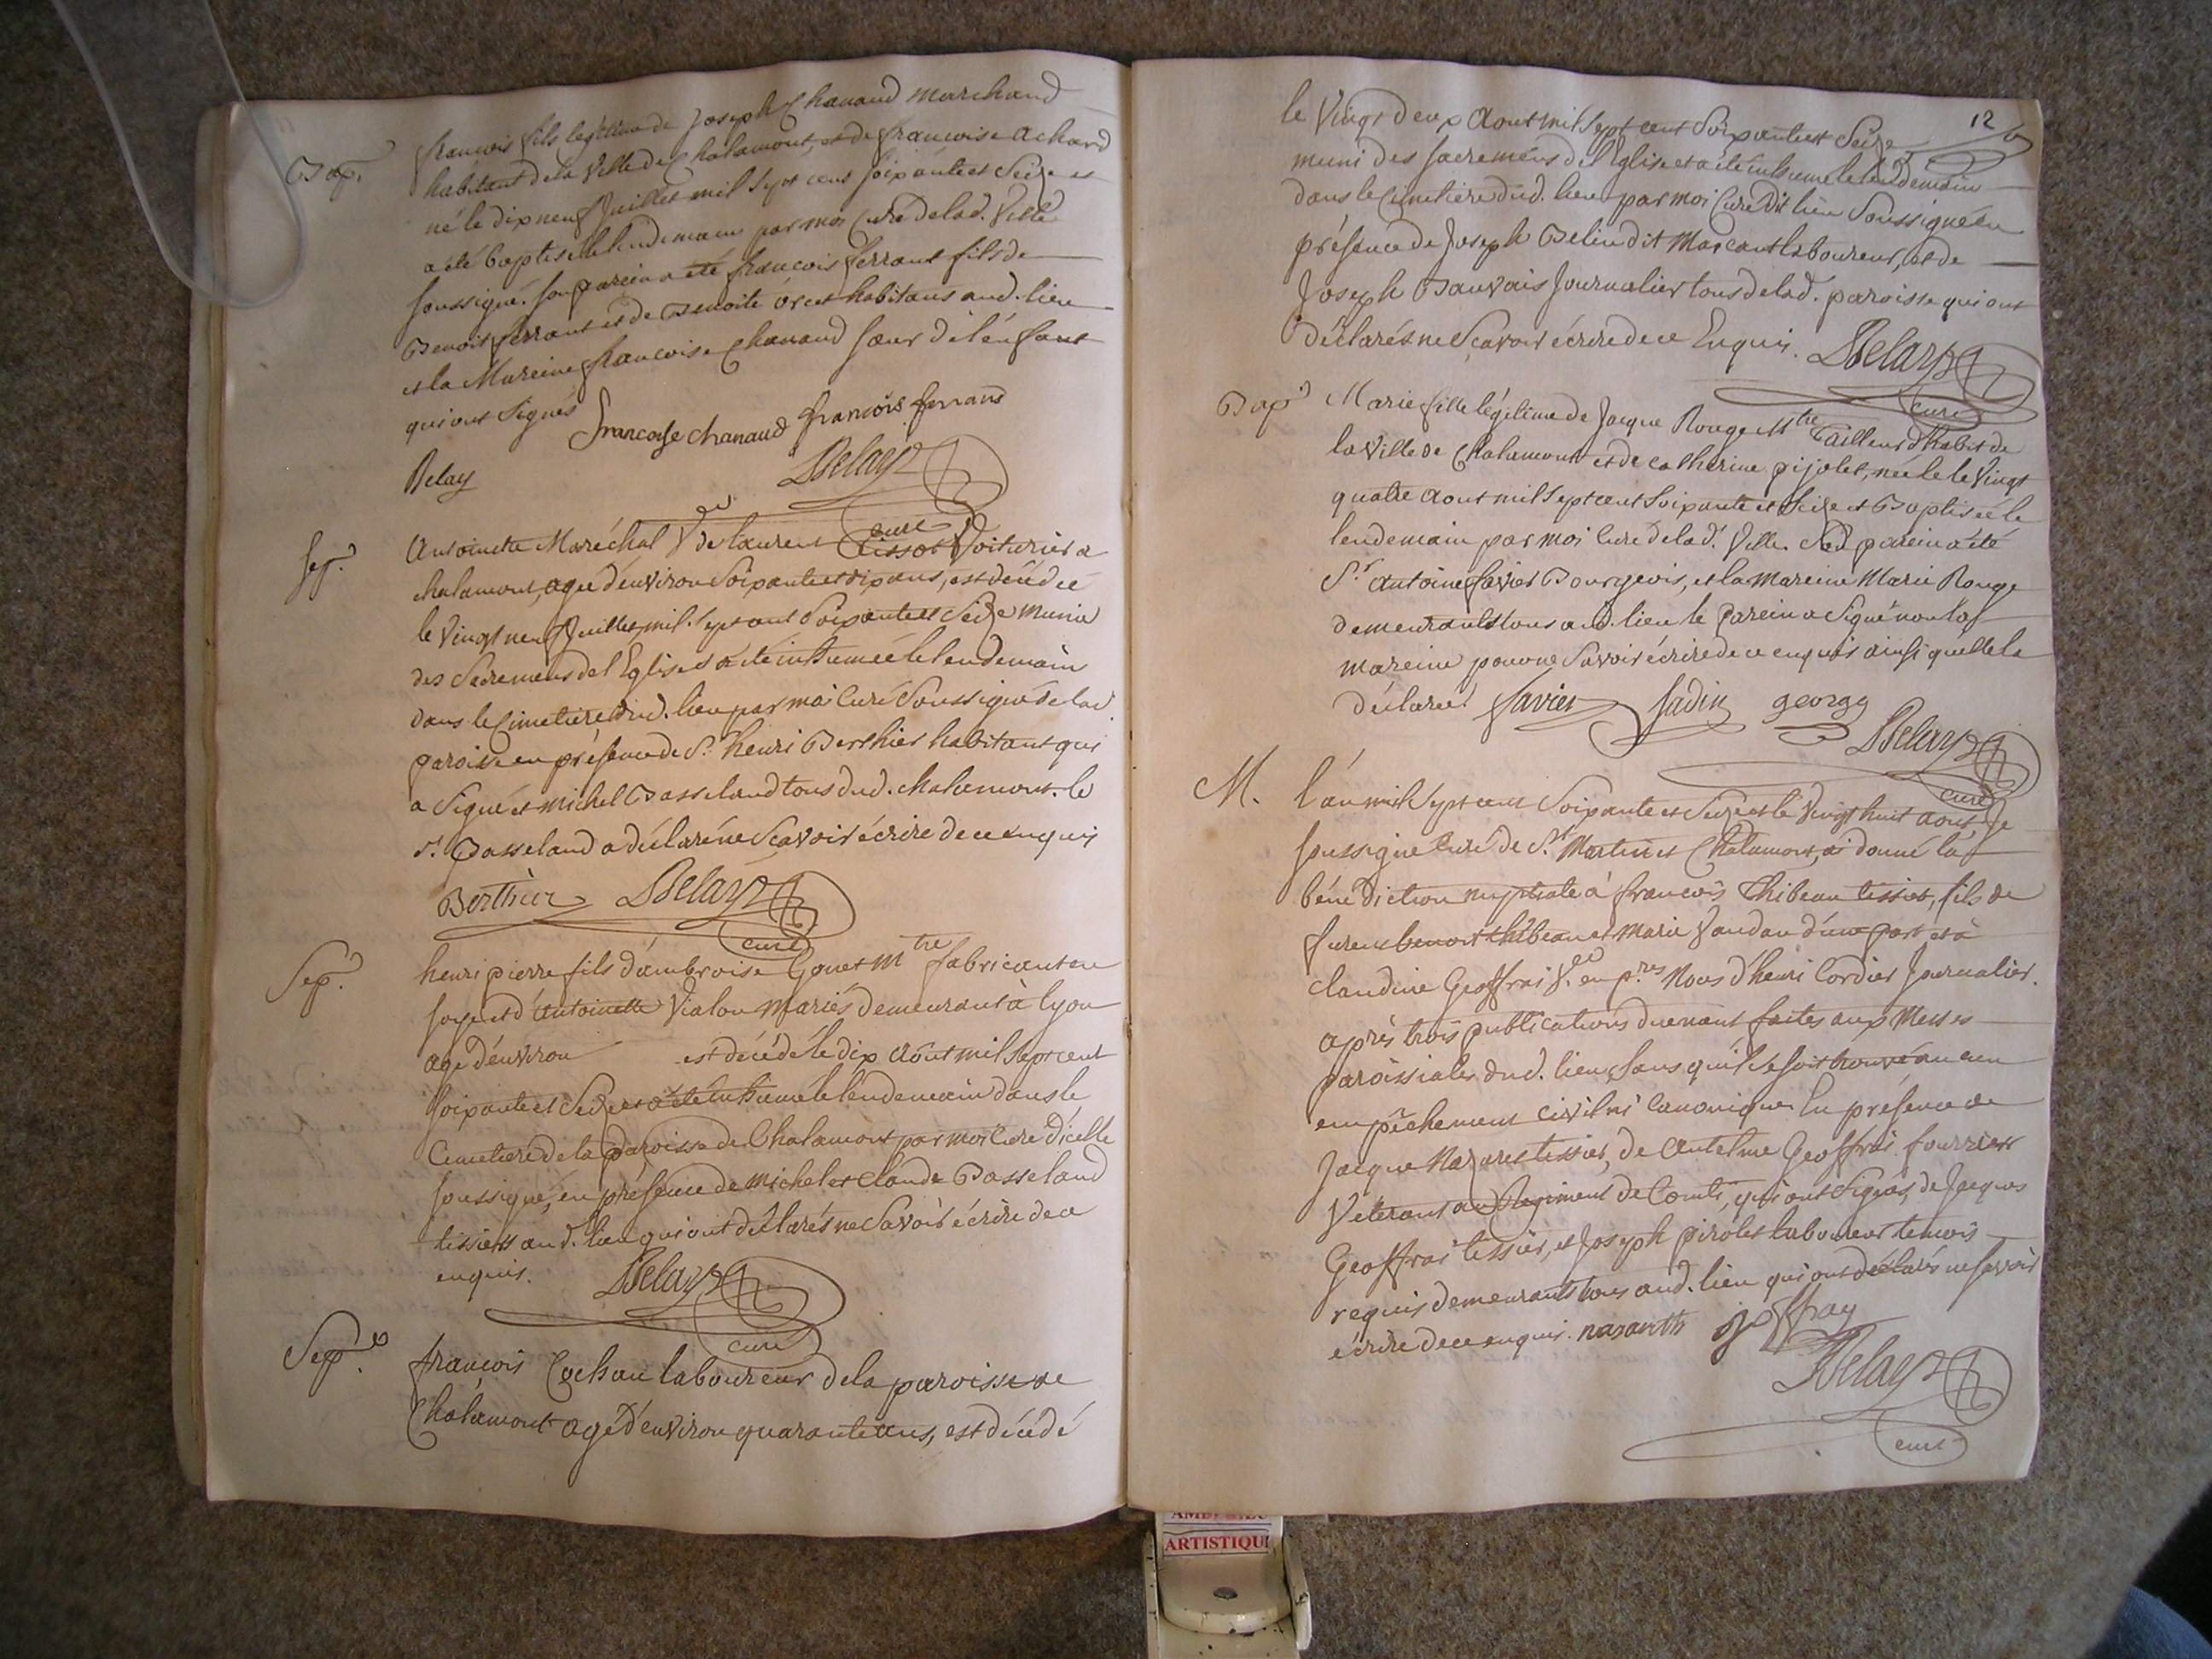 Bap.
francois fils legitime de Joseph Chanaud marchand
habitant de la Ville de Chalamont, et de francoise achard
né le dix neuf Juillet mil sept cent soixante et seize et
a été baptisé le lendemain par moi Curé de lad. Ville
soussigné. son parein a été francois ferrant fils de
Benoit ferrant et de Benoite orcet habitans aud. lieu
et la Mareine francoise Chanaud sœur de l'enfant
qui ont signés francoise chanaud francois ferrand
Belay
DBelay curé
Sep.
Antoinette Maréchal Vve de laurent tissot Voiturier a
chalamont, agée d'environ soixante et dix ans, est décédée
le Vingt neuf Juillet mil sept cent soixante et seize munie
des Sacremens de l'Eglise et a été inhumée le lendemain
dans le Cimetiere dud. lieu par moi Curé soussigné de lad.
paroisse en présence de Sr. henri Berthier habitant qui
a signé et michel Basseland tous dud. chalamont. le
d. Basseland a déclaré ne scavoir écrire de ce enquis
Berthier DBelay curé
Sep.
henri pierre fils d'ambroise Gonet mtre fabricant en
soye et d'Antoinette Vialon mariés demeurant à lyon
agé d'environ est décédé le dix aout mil sept cent
soixante et seize et a été inhumé le lendemain dans le
Cimetiere de la paroisse de Chalamont par moi Curé d'icelle
soussigné, en présence de michel et Claude Basseland
tissiers aud. lieu qui ont déclarés ne savoir écrire de ce
enquis. DBelay
curé
Sep.
françois Cochon laboureur de la paroisse de
Chalamont agé d'environ quarante ans, est décédé
12
le Vingt deux aout mil sept cent soixante et seize
muni des sacremens de l'Eglise et a été inhumé le lendemain
dans le Cimetiere dud. lieu par moi Curé dit lieu soussigné en
présence de Joseph Belin dit Marcant laboureur, et de
Joseph Bauvais Journalier tous de lad. paroisse qui ont
déclarés ne scavoir écrire de ce Enquis. DBelay
curé
Bap.
Marie fille légitime de Jacque Rouge Mtre Tailleur d'habit de
la Ville de Chalamont et de catherine pijolet, née le le Vingt
quatre aout mil sept cent soixante et seize et Baptisée le
lendemain par moi Curé de lad. Ville. son parein a été
Sr. antoine favier Bourgeois, et la mareine Marie Rouge
demeurants tous aud. lieu le parein a signé non la
mareine pour ne savoir écrire de ce enquis ainsi quelle l'a
déclaré favier Jadin georgy
DBelay curé
M.
l'an mil sept cent soixante et seize et le Vingt huit aout, je
soussigné Curé de St. Martin et Chalamont, ai donné la
béné diction nuptiale à francois thibeau tissier, fils de
furent benoit thibeau et marie Vaudan d'une part et à
claudine Geoffrai Vve en pres. Noces d'henri Cordier Journalier.
après trois publications duement faites aux Messes
paroissiales dud. lieu, sans qu'il se soit trouvé aucun
empêchement civil ni Canonique En présence de
Jacque Nazaret tissier, de Antelme Geoffrai fourrier
Vétérant au Regiment de Conti, qui ont signés, de Jacques
Geoffrai tissier, et Joseph pirolet laboureur temois
requis demeurants tous aud. lieu qui ont déclarés ne savoir
écrire de ce enquis. nazareth joffray
DBelay
curé
ARTISTIQU